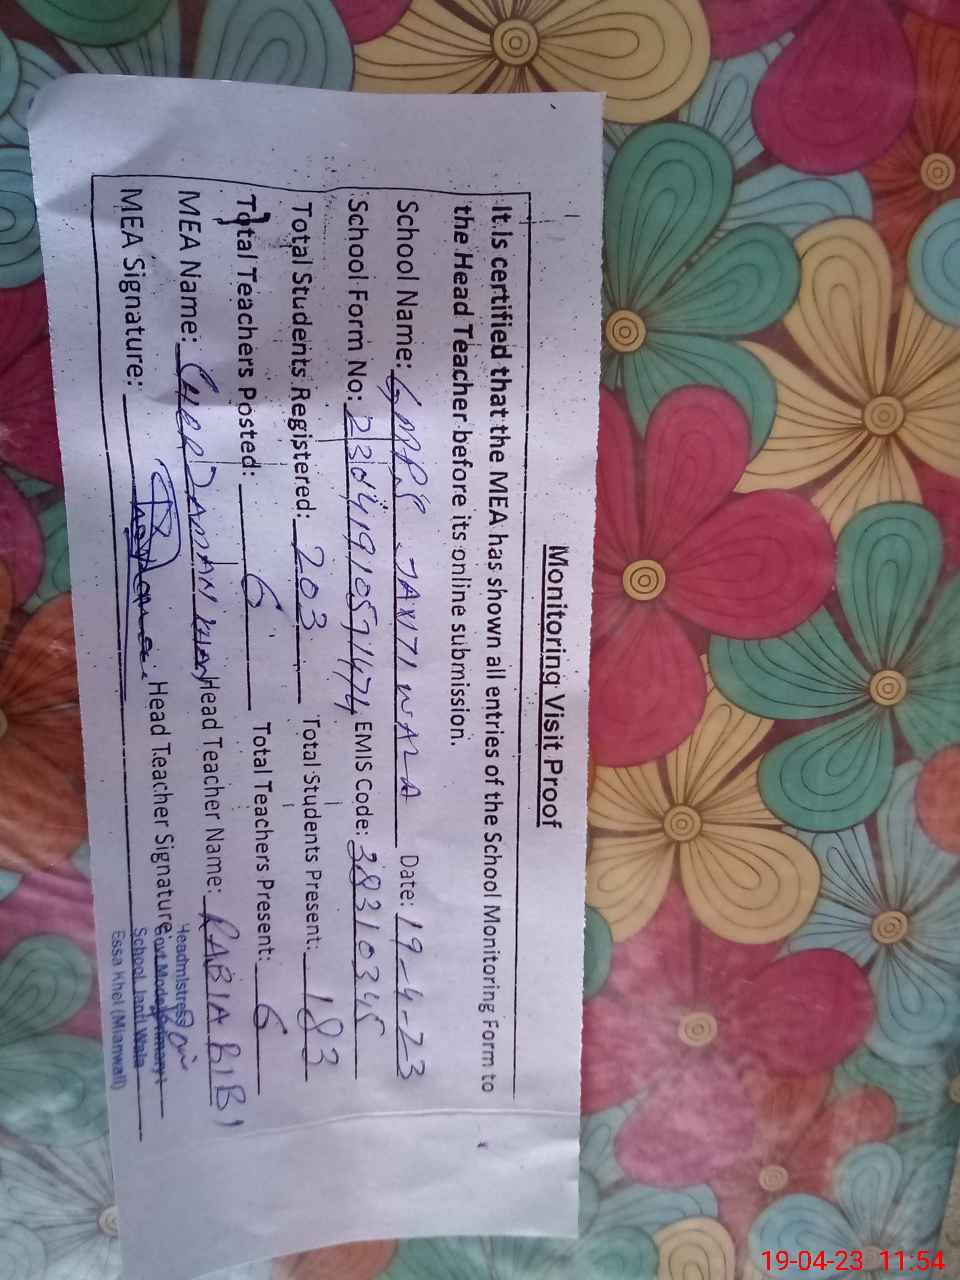 Monitoring Visit Proof
It Is certified that the MEA has shown all entries of the School Monitoring Form to
the Head Teacher before its online submission.
School Name: GMPS JANTI WALA Date: 19-4-23
School Form No: EMIS Code: 38310345
Total Students Registered: 203 Total Students Present: 183
Total Teachers Posted: 6 Total Teachers Present: 6
MEA Name: KHAN Head Teacher Name: RABIA BIBI
MEA Signature: Head Teacher Signature:
Headmistress
Govt Model Primary
School Janti Wala
Essa Khel (Mianwali)
19-04-23 11:54